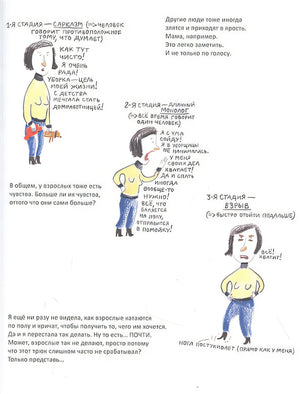 1-Я СТАДИЯ — САРКАЗМ (=> ЧЕЛОВЕК
ГОВОРИТ ПРОТИВОПОЛОЖНОЕ
ТОМУ, ЧТО ДУМАЕТ)
КАК ТУТ
ЧИСТО!
Я ОЧЕНЬ
РАДА!
УБОРКА – ЦЕЛЬ
МОЕЙ ЖИЗНИ!
С ДЕТСТВА
МЕЧТАЛА СТАТЬ
ДОМРАБОТНИЦЕЙ!
Другие люди тоже иногда
злятся и приходят в ярость.
Мама, например.
Это легко заметить.
И не только по голосу.
2-Я СТАДИЯ – ДЛИННЫЙ
МОНОЛОГ
(=> ВСЁ ВРЕМЯ ГОВОРИТ
ОДИН ЧЕЛОВЕК)
Я С УМА
СОЙДУ!
Я В УБОРЩИЦЫ
НЕ НАНИМАЛАСЬ.
У МЕНЯ
СВОИХ ДЕЛ
ХВАТАЕТ!
ДА И СПАТЬ
ИНОГДА
ВООБЩЕ-ТО
НУЖНО!
ВСЁ, ЧТО
ВАЛЯЕТСЯ
НА ПОЛУ,
ОТПРАВИТСЯ
В ПОМОЙКУ!
В общем, у взрослых тоже есть
чувства. Больше ли их чувства,
оттого что они сами больше?
3-Я СТАДИЯ –
ВЗРЫВ
(=> БЫСТРО ОТОЙТИ ПОДАЛЬШЕ)
ВСЁ!
ХВАТИТ!
НОГА ПОСТУКИВАЕТ (ПРЯМО КАК У МЕНЯ)
Я ещё ни разу не видела, как взрослые катаются
по полу и кричат, чтобы получить то, чего им хочется.
Да и я перестала так делать. Ну то есть... ПОЧТИ.
Может, взрослые так не делают, просто потому
что этот трюк слишком часто не срабатывал?
Только представь...